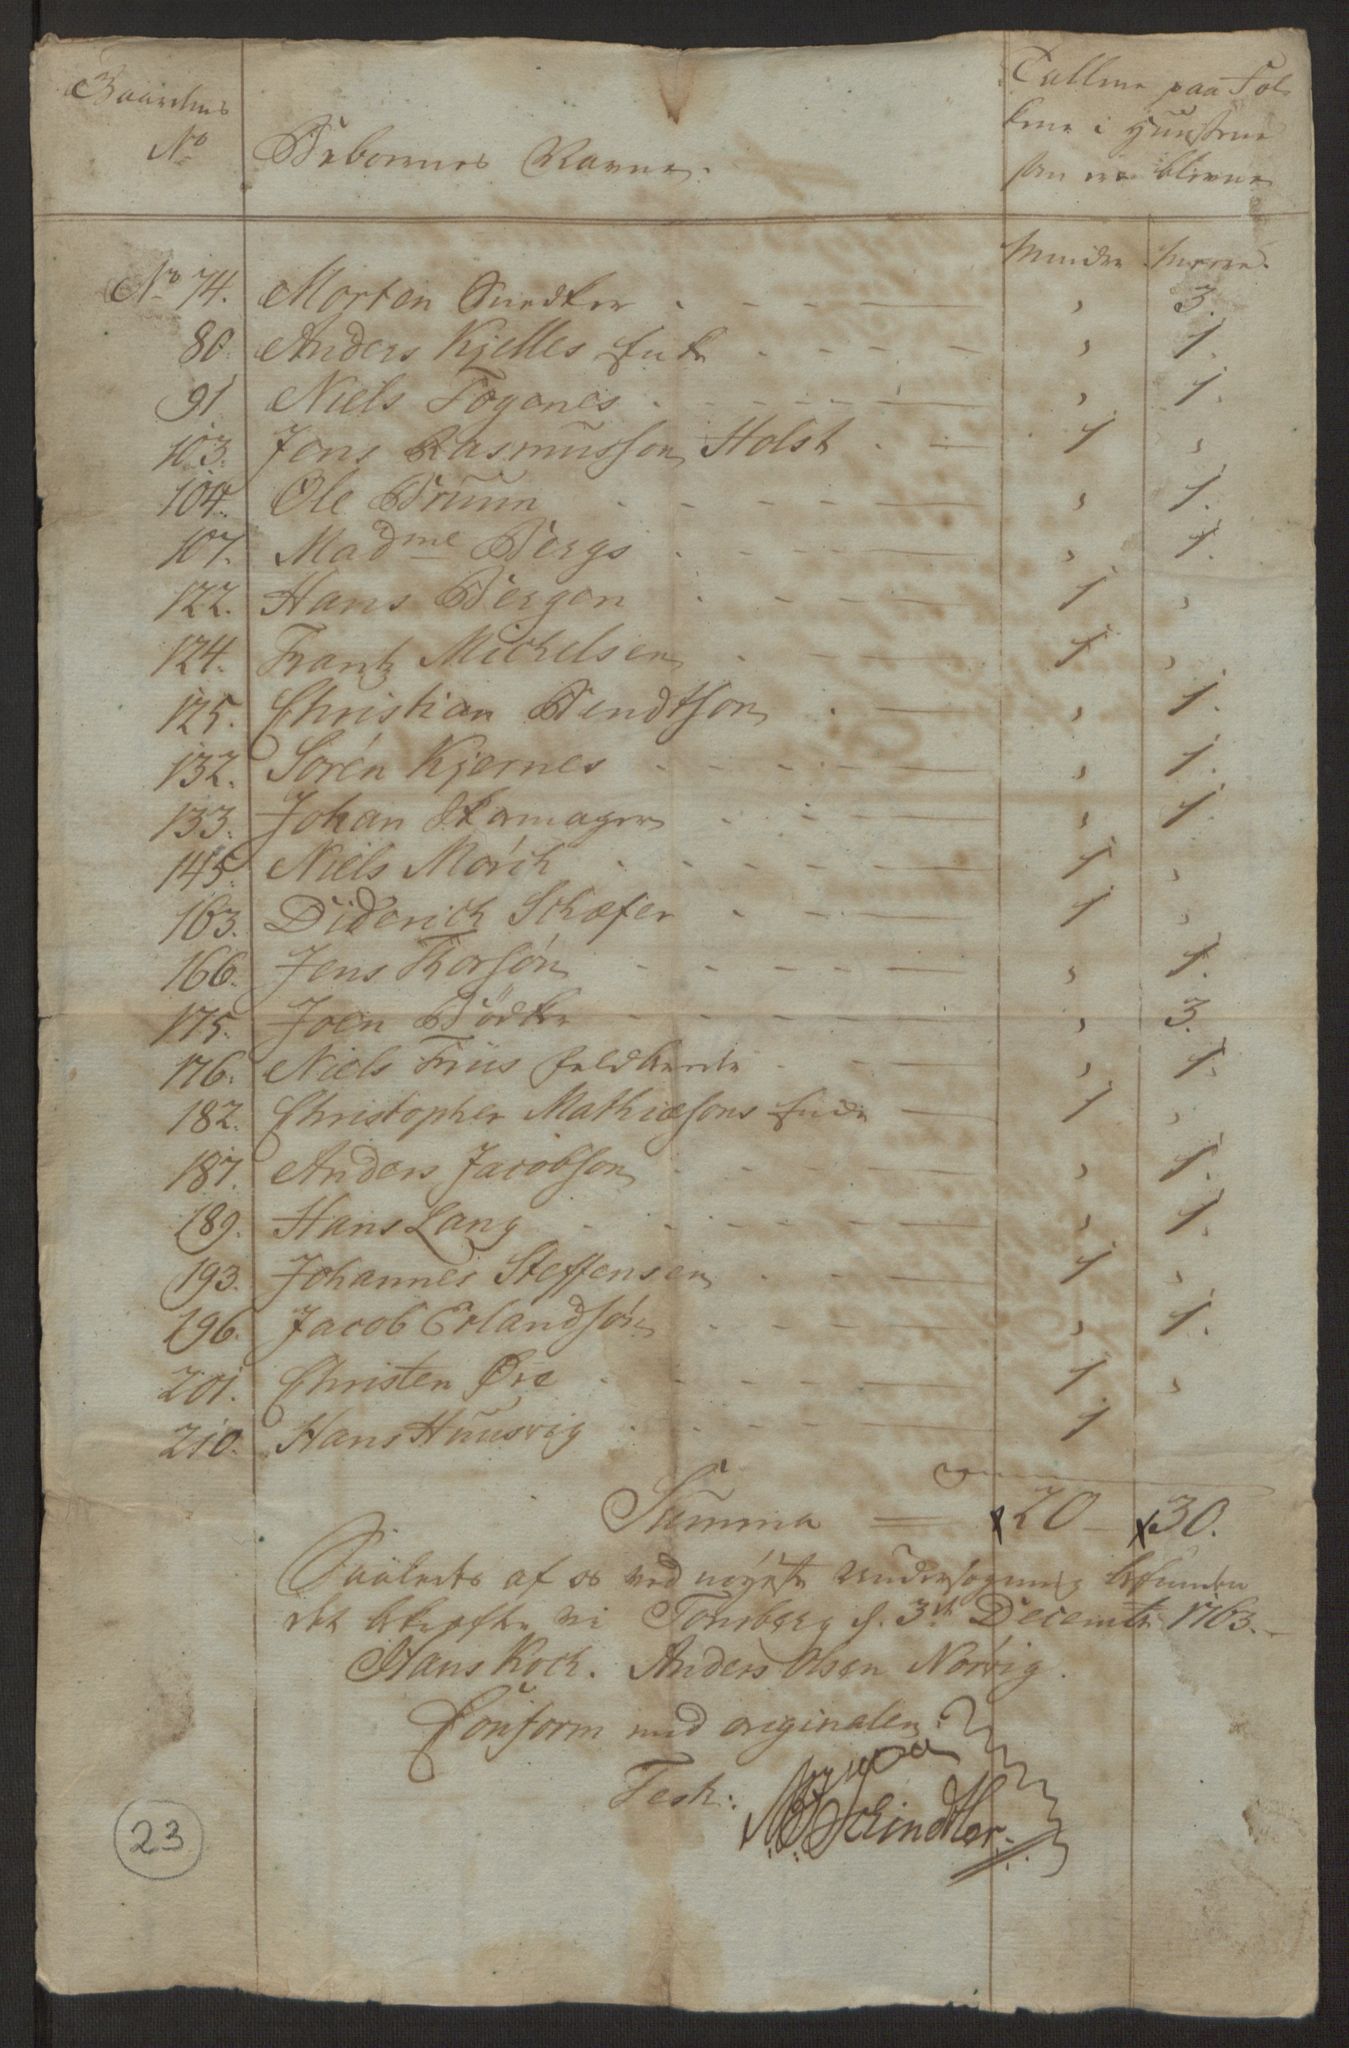 Gaardens
No
Beboernes Navne.
Tallene paa Fol-
kene i Huusene
som ere blevne
Mindre Meere.
No 74. Morten Snedker " 3.
80. Anders Kjelles Enke " 1.
91 Niels Foyenes " 1.
103. Jens Rasmussen Holst 1 "
104. Ole Bruun " 1.
107. Madme Bergs " 1.
122. Hans Bergan 1 "
124. Frantz Michelsen 1 "
125. Christian Bendtson " 1.
132. Sorén Kjernes " 1.
133. Johan Skomager " 1.
145. Niels Mörch 1 "
163. Diderich Schæfer 1 "
166. Jens Thorsøn " 1.
175. Joen Bödker " 3.
176. Niels Friis " 1.
182. Christopher Mathiesons Enke 1 "
187. Anders Jacobson " 1.
189. Hans Lang " 1.
193. Johannes Steffensen 1 "
196. Jacob Erlandsøn " 1.
201. Christen Øre 1 "
210. Hans Huusvig 1
Summa = 20 – 30.
Saaledes af os ved nöyeste Undersøgning befunden
det bekræfter vi Tonsberg d. 3de Decembr 1763.
Hans Koch. Anders Olsen Nørvig.
Conform med originalen
Test:
Schindtler.
23